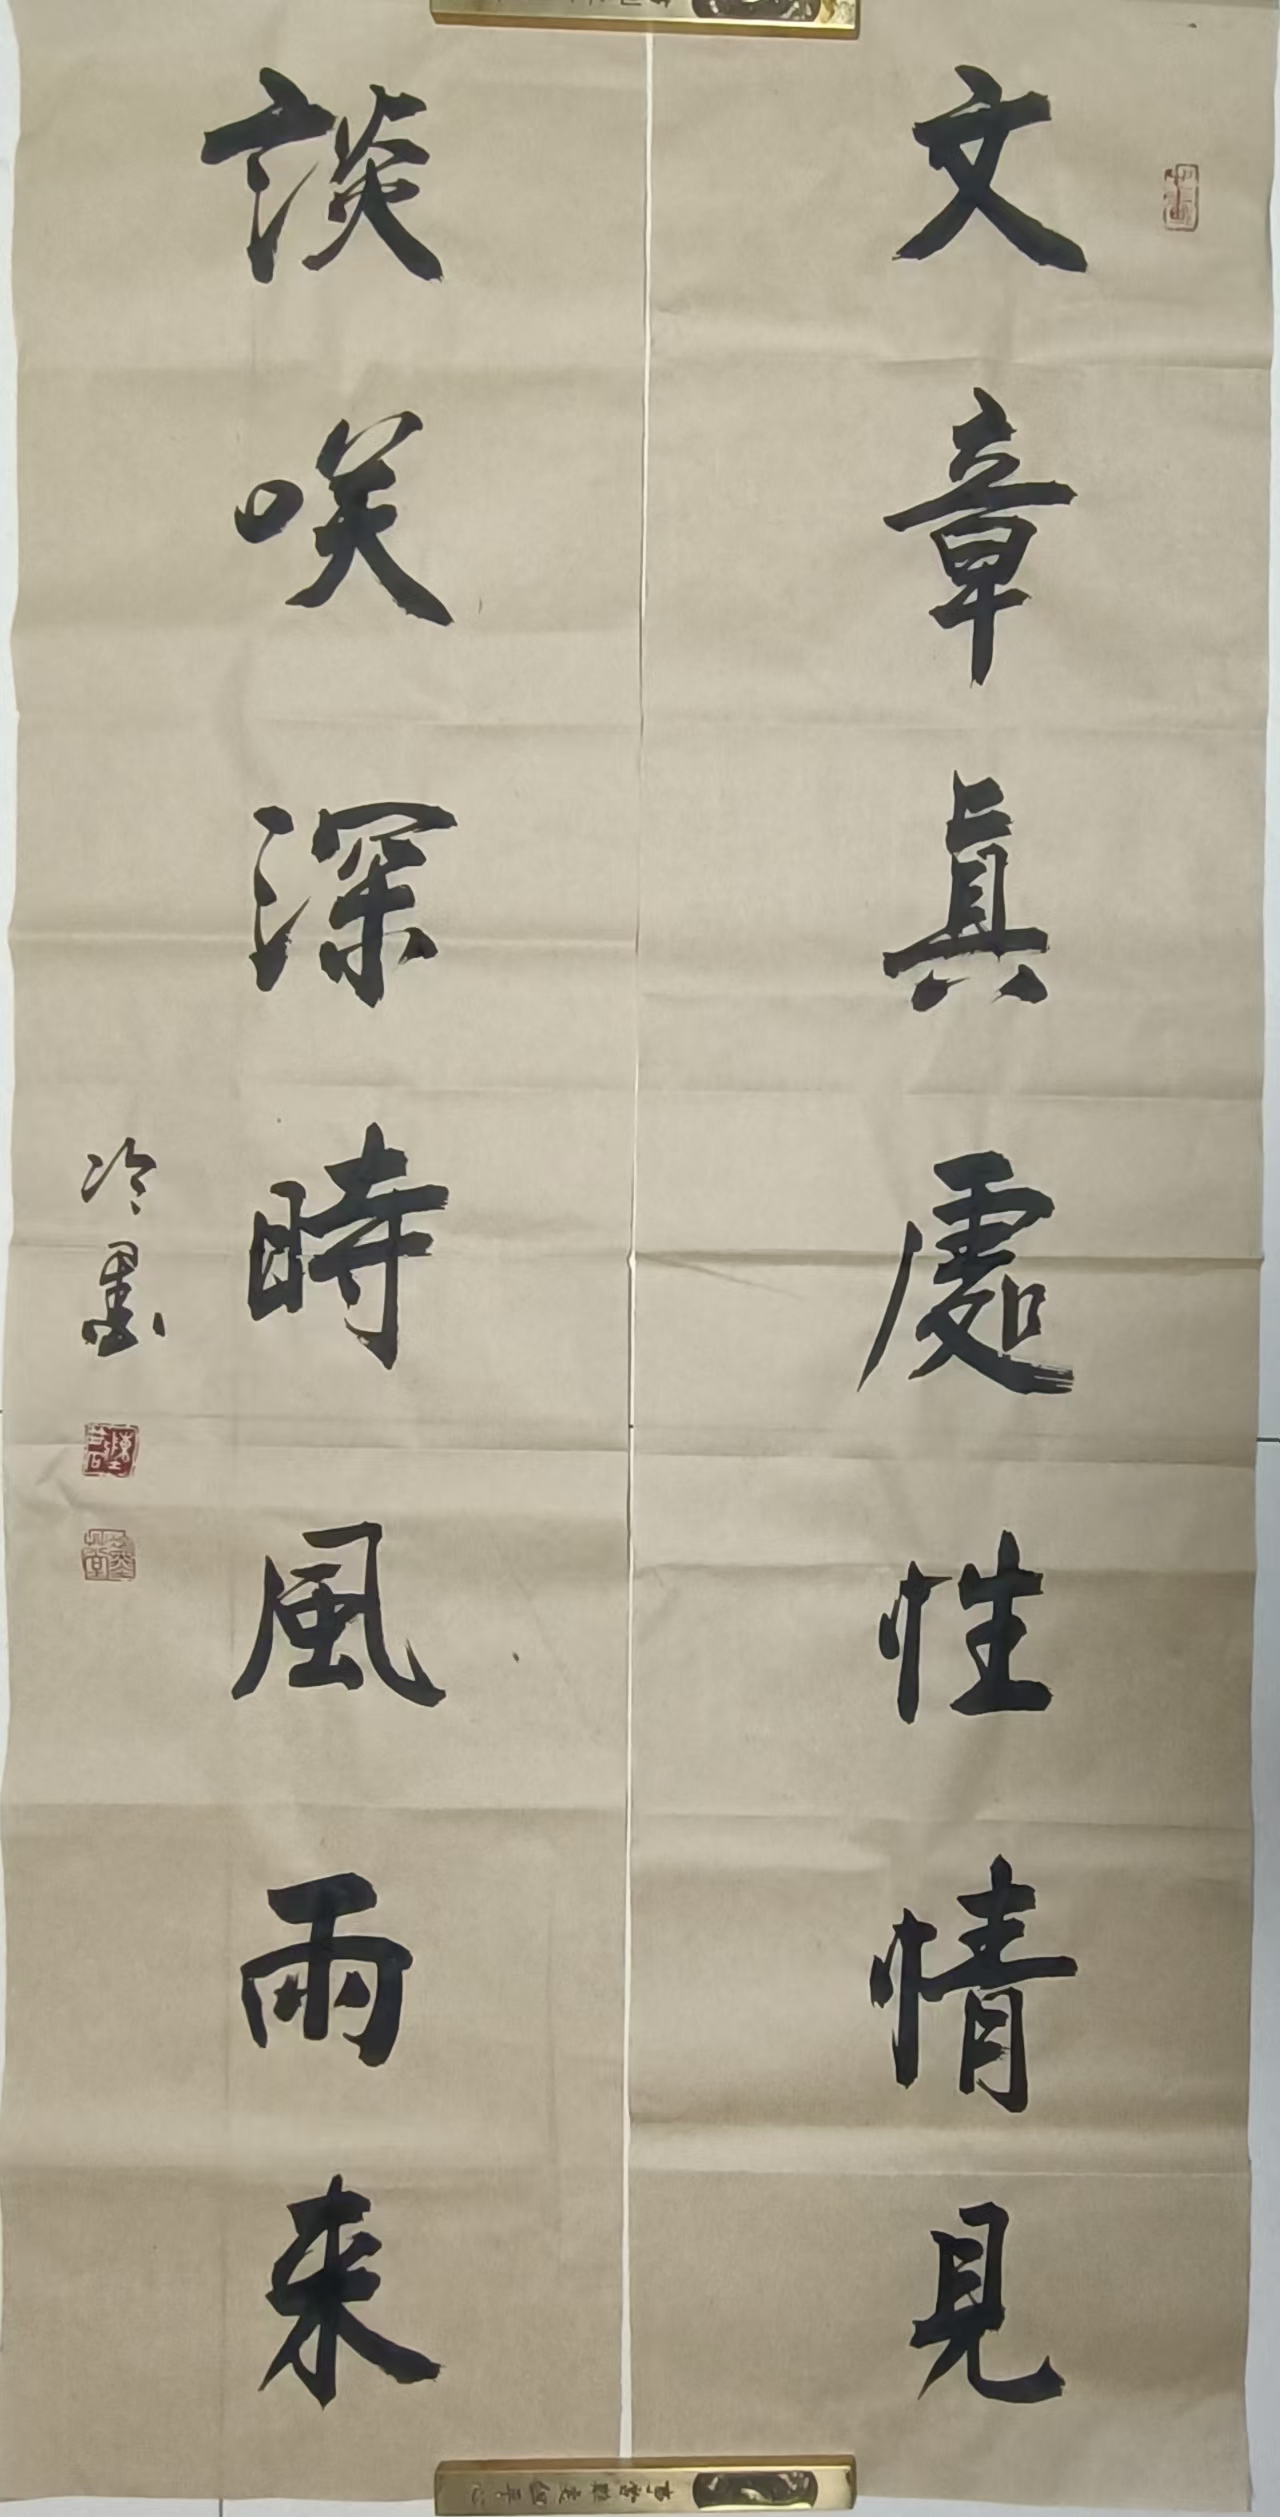 文章真處性情見
談咲深時風雨来
冷墨